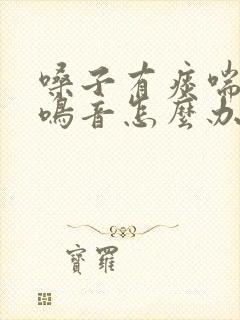 嗓子有痰喘
鳴音怎麼办
寶羅